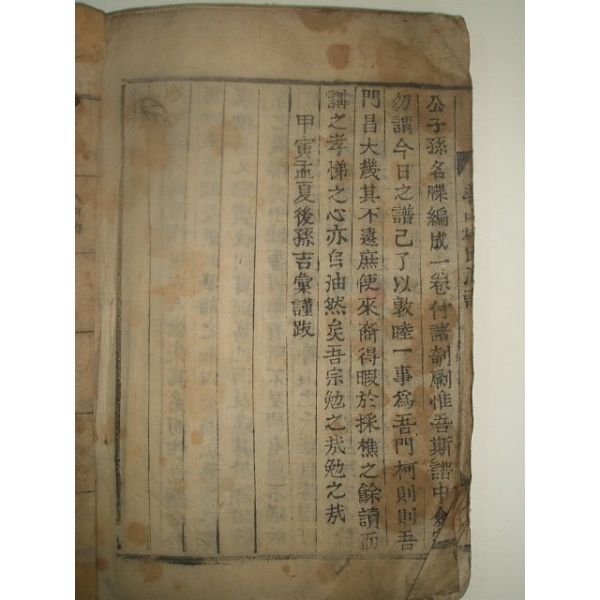 公子孫名牒編成一卷付諸剞劂惟吾斯譜中
勿謂今日之譜已了以敦睦一事爲吾門柯則則吾
門昌大幾其不遠庶使來裔得暇於採樵之餘讀而
講之孝悌之心亦自油然矣吾宗勉之㦲勉之㦲
甲寅孟夏後孫吉彙謹跋